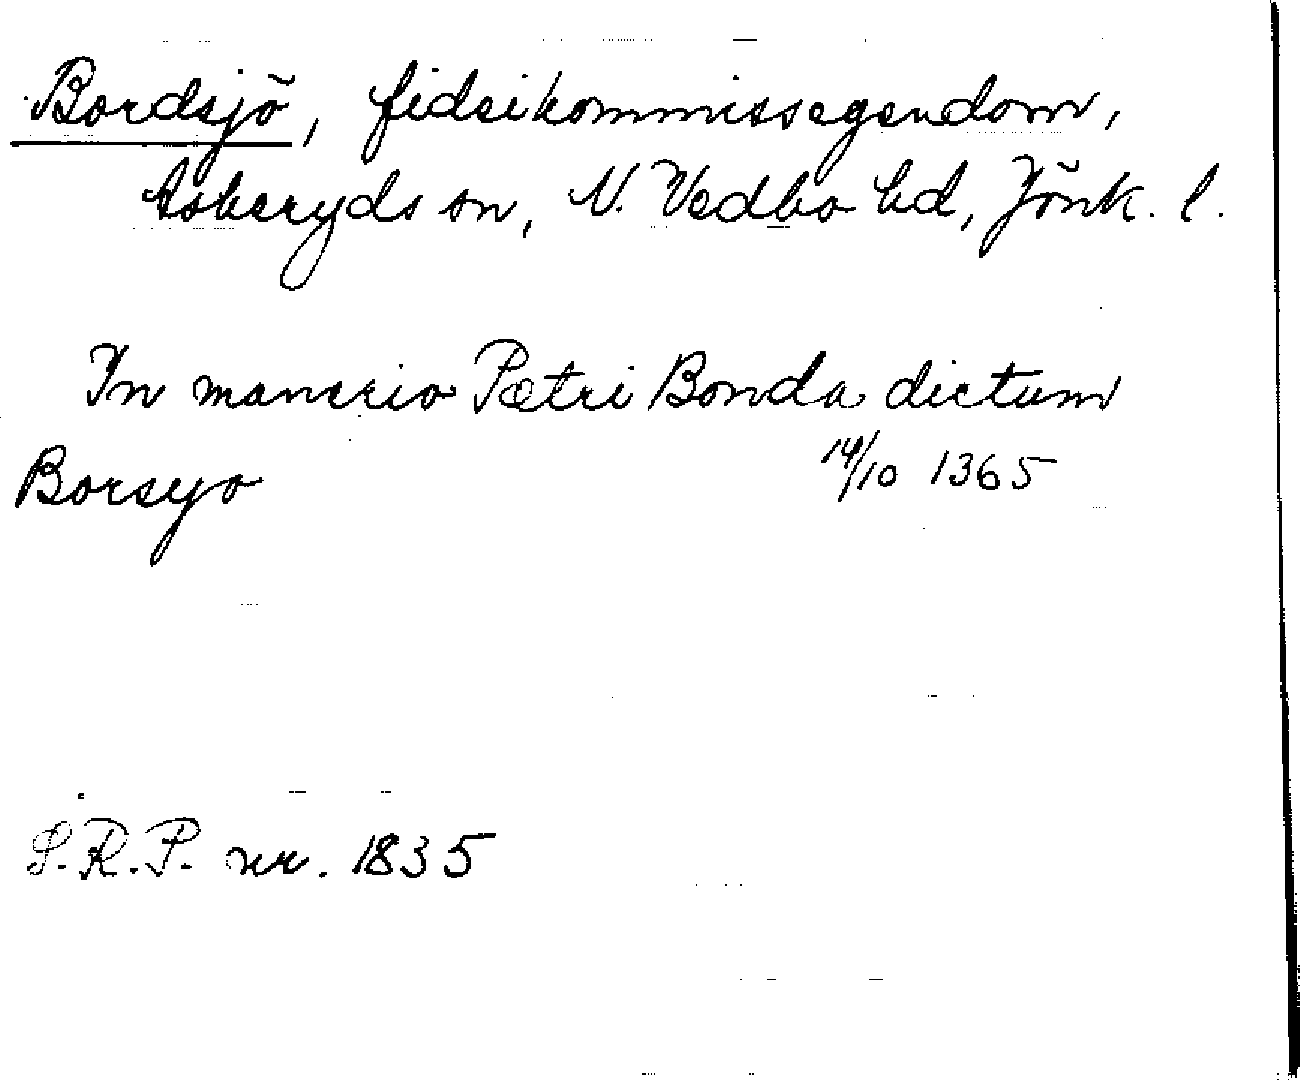 Bordsjö, fideikommissegendom,
Askeryds sn, N. Vedbo hd, Jönk. l.
In manerio Petri Bonda dictum
Borsyo 14/10 1365
S.R.P. nr. 1835